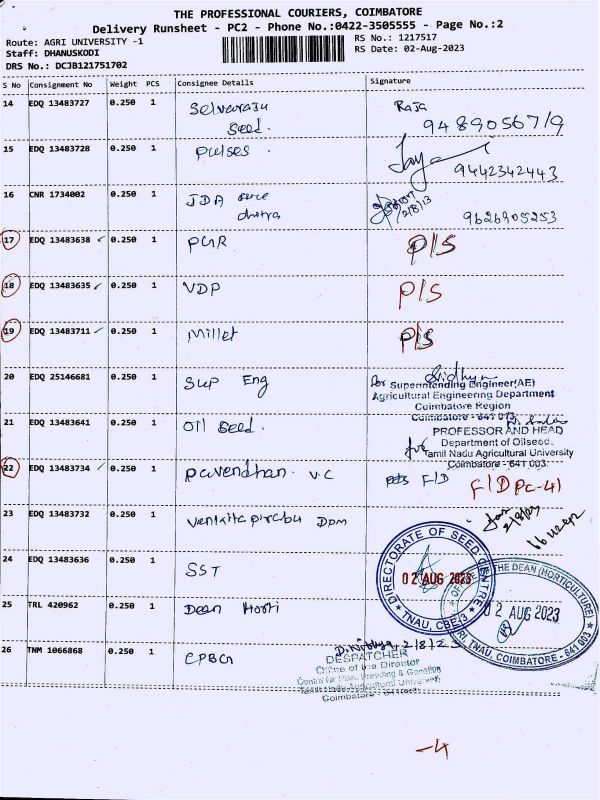 THE PROFESSIONAL COURIERS, COIMBATORE
Delivery Runsheet - PC2 - Phone No.:0422-3505555 - Page No.:2
Route: AGRI UNIVERSITY -1
Staff: DHANUSKODI
DRS No.: DCJB121751702
RS No.: 1217517
RS Date: 02-Aug-2023
S No Consignment No Weight PCS Consignee Details Signature
14 EDQ 13483727 0.250 1 Selvaraju Seed. Raja
9489056719
15 EDQ 13483728 0.250 1 Pulses. Jaya
9442342443
16 CNR 1734002 0.250 1 JDA
2/8/13
9626905253
17 EDQ 13483638 0.250 1 PGR P/S
18 EDQ 13483635 0.250 1 VDP P/S
19 EDQ 13483711 0.250 1 Millet P/S
20 EDQ 25146681 0.250 1 Sup Eng
for Superintending Engineer(AE)
Agricultural Engineering Department
Coimbatore Region
Coimbatore - 641 013.
21 EDQ 13483641 0.250 1 Oil Seed.
PROFESSOR AND HEAD
for Department of Oilseed
Tamil Nadu Agricultural University
Coimbatore - 641 003.
22 EDQ 13483734 0.250 1 Pavendhan. V.C F/D F/D PC-41
23 EDQ 13483732 0.250 1 Venkita pirabu DPM
2/8/23
24 EDQ 13483636 0.250 1 SST
DIRECTORATE OF SEED CENTRE
02 AUG 2023
TNAU, CBE-3
25 TRL 420962 0.250 1 Dean Horti
THE DEAN (HORTICULTURE)
02 AUG 2023
TNAU, COIMBATORE - 641 003
26 TNM 1066868 0.250 1 CPBG
2/8/23
DESPATCHER
Office of the Director
Centre for Plan. Breeding & Genetics
Tamil Nadu Agricultural University
Coimbatore - 641 003.
-4